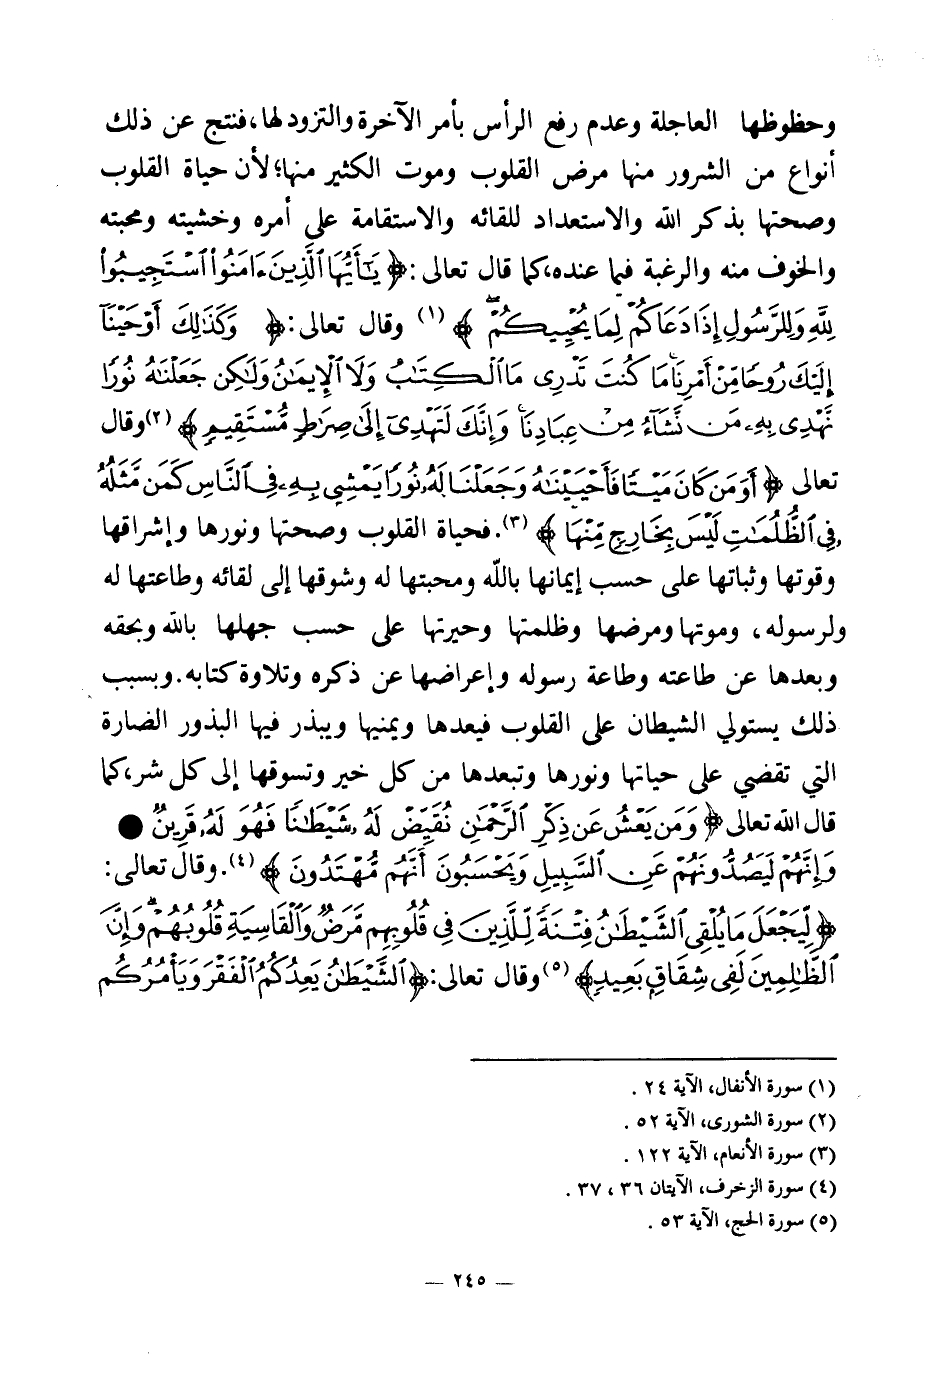 وحظوظها العاجلة وعدم رفع الرأس بأمر الآخرة والتزود لها، فنتج عن ذلك
أنواع من الشرور منها مرض القلوب وموت الكثير منها؛ لأن حياة القلوب
وصحتها بذكر الله والاستعداد للقائه والاستقامة على أمره وخشيته ومحبته
والخوف منه والرغبة فيما عنده، كما قال تعالى: ﴿ يَٰٓأَيُّهَا ٱلَّذِينَ ءَامَنُوا۟ ٱسْتَجِيبُوا۟
لِلَّهِ وَلِلرَّسُولِ إِذَا دَعَاكُمْ لِمَا يُحْيِيكُمْ ۖ ﴾ (١) وقال تعالى: ﴿ وَكَذَٰلِكَ أَوْحَيْنَآ
إِلَيْكَ رُوحًا مِّنْ أَمْرِنَا ۚ مَا كُنتَ تَدْرِى مَا ٱلْكِتَٰبُ وَلَا ٱلْإِيمَٰنُ وَلَٰكِن جَعَلْنَٰهُ نُورًا
نَّهْدِى بِهِۦ مَن نَّشَآءُ مِنْ عِبَادِنَا ۚ وَإِنَّكَ لَتَهْدِىٓ إِلَىٰ صِرَٰطٍ مُّسْتَقِيمٍ ﴾ (٢) وقال
تعالى ﴿ أَوَمَن كَانَ مَيْتًا فَأَحْيَيْنَٰهُ وَجَعَلْنَا لَهُۥ نُورًا يَمْشِى بِهِۦ فِى ٱلنَّاسِ كَمَن مَّثَلُهُۥ
فِى ٱلظُّلُمَٰتِ لَيْسَ بِخَارِجٍ مِّنْهَا ﴾ (٣). فحياة القلوب وصحتها ونورها وإشراقها
وقوتها وثباتها على حسب إيمانها بالله ومحبتها له وشوقها إلى لقائه وطاعتها له
ولرسوله، وموتها ومرضها وظلمتها وحيرتها على حسب جهلها بالله وبحقه
وبعدها عن طاعته وطاعة رسوله وإعراضها عن ذكره وتلاوة كتابه. وبسبب
ذلك يستولي الشيطان على القلوب فيعدها ويمنيها ويبذر فيها البذور الضارة
التي تقضي على حياتها ونورها وتبعدها من كل خير وتسوقها إلى كل شر، كما
قال الله تعالى ﴿ وَمَن يَعْشُ عَن ذِكْرِ ٱلرَّحْمَٰنِ نُقَيِّضْ لَهُۥ شَيْطَٰنًا فَهُوَ لَهُۥ قَرِينٌ ●
وَإِنَّهُمْ لَيَصُدُّونَهُمْ عَنِ ٱلسَّبِيلِ وَيَحْسَبُونَ أَنَّهُم مُّهْتَدُونَ ﴾ (٤). وقال تعالى:
﴿ لِّيَجْعَلَ مَا يُلْقِى ٱلشَّيْطَٰنُ فِتْنَةً لِّلَّذِينَ فِى قُلُوبِهِم مَّرَضٌ وَٱلْقَاسِيَةِ قُلُوبُهُمْ ۗ وَإِنَّ
ٱلظَّٰلِمِينَ لَفِى شِقَاقٍۭ بَعِيدٍ ﴾ (٥) وقال تعالى: ﴿ ٱلشَّيْطَٰنُ يَعِدُكُمُ ٱلْفَقْرَ وَيَأْمُرُكُم
(١) سورة الأنفال، الآية ٢٤ .
(٢) سورة الشورى، الآية ٥٢ .
(٣) سورة الأنعام، الآية ١٢٢ .
(٤) سورة الزخرف، الآيتان ٣٦ ، ٣٧ .
(٥) سورة الحج، الآية ٥٣ .
— ٢٤٥ —